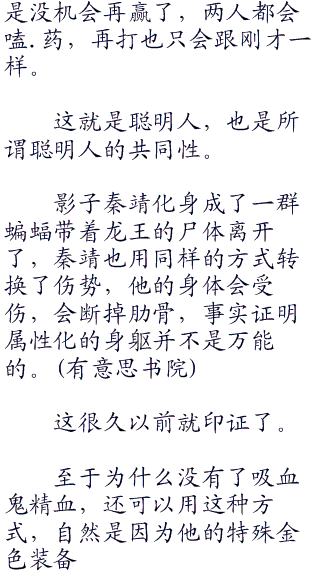 是没机会再赢了，两人都会
嗑.药，再打也只会跟刚才一
样。
这就是聪明人，也是所
谓聪明人的共同性。
影子秦靖化身成了一群
蝙蝠带着龙王的尸体离开
了，秦靖也用同样的方式转
换了伤势，他的身体会受
伤，会断掉肋骨，事实证明
属性化的身躯并不是万能
的。(有意思书院)
这很久以前就印证了。
至于为什么没有了吸血
鬼精血，还可以用这种方
式，自然是因为他的特殊金
色装备